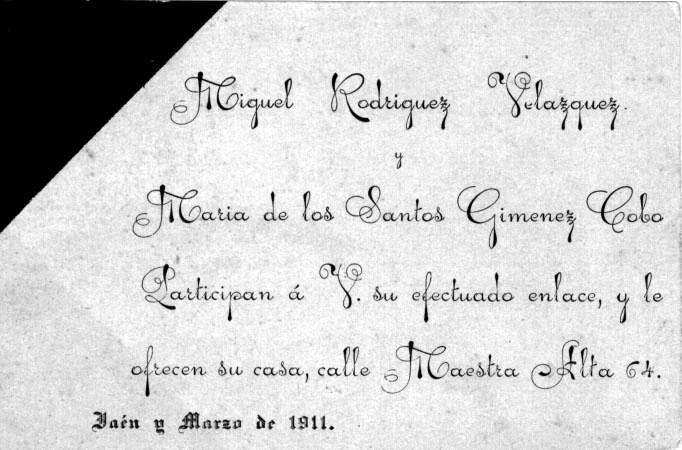 Miguel Rodriguez Velazquez.
y
Maria de los Santos Gimenez Cobo
Participan á V. su efectuado enlace, y le
ofrecen su casa, calle Maestra Alta 64.
Jaén y Marzo de 1911.